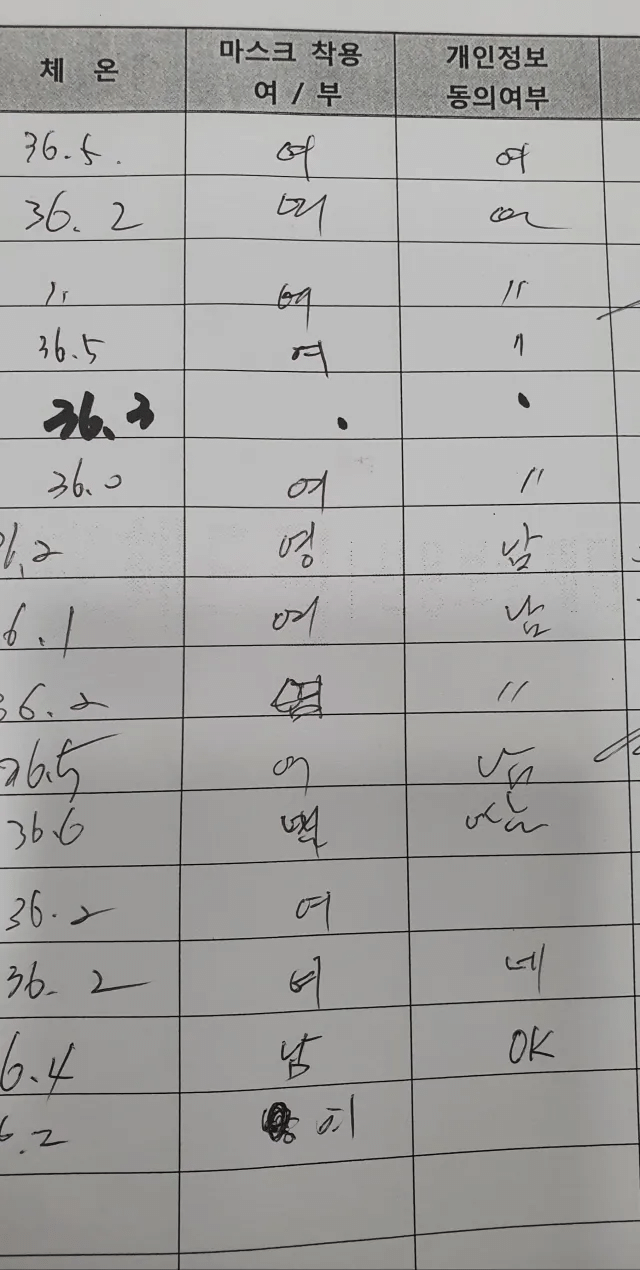 체 온 마스크 착용 여 / 부 개인정보 동의여부
36.5. 여 여
36.2 여 여
〃 여 〃
36.5 여 〃
36.3 . .
36.0 여 〃
36.2 영 남
6.1 여 남
36.2 〃
36.5 여 남
36.6
36.2 여
36.2 여 네
6.4 남 OK
6.2